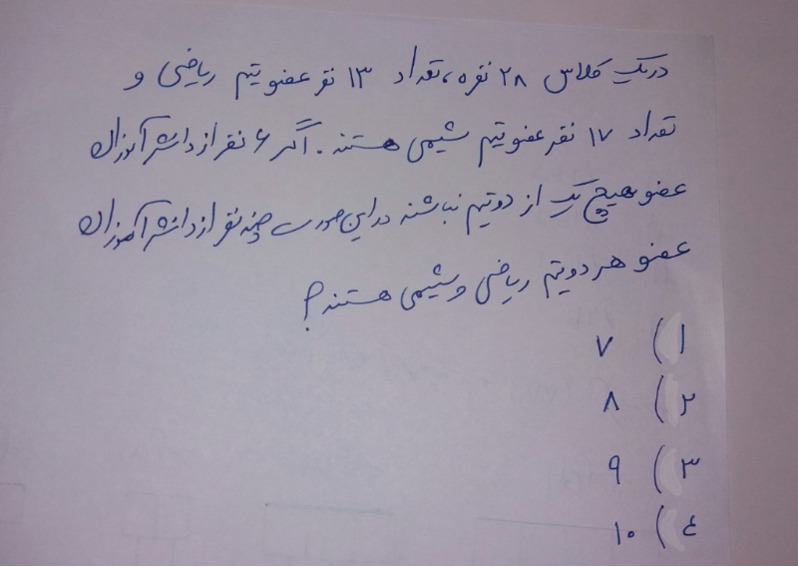 در یک کلاس ۲۸ نفره، تعداد ۱۳ نفر عضو تیم ریاضی و
تعداد ۱۷ نفر عضو تیم شیمی هستند. اگر ۶ نفر از دانش آموزان
عضو هیچ یک از دو تیم نباشند در این صورت چند نفر از دانش آموزان
عضو هر دو تیم ریاضی و شیمی هستند؟
۱) ۷
۲) ۸
۳) ۹
٤) ۱۰